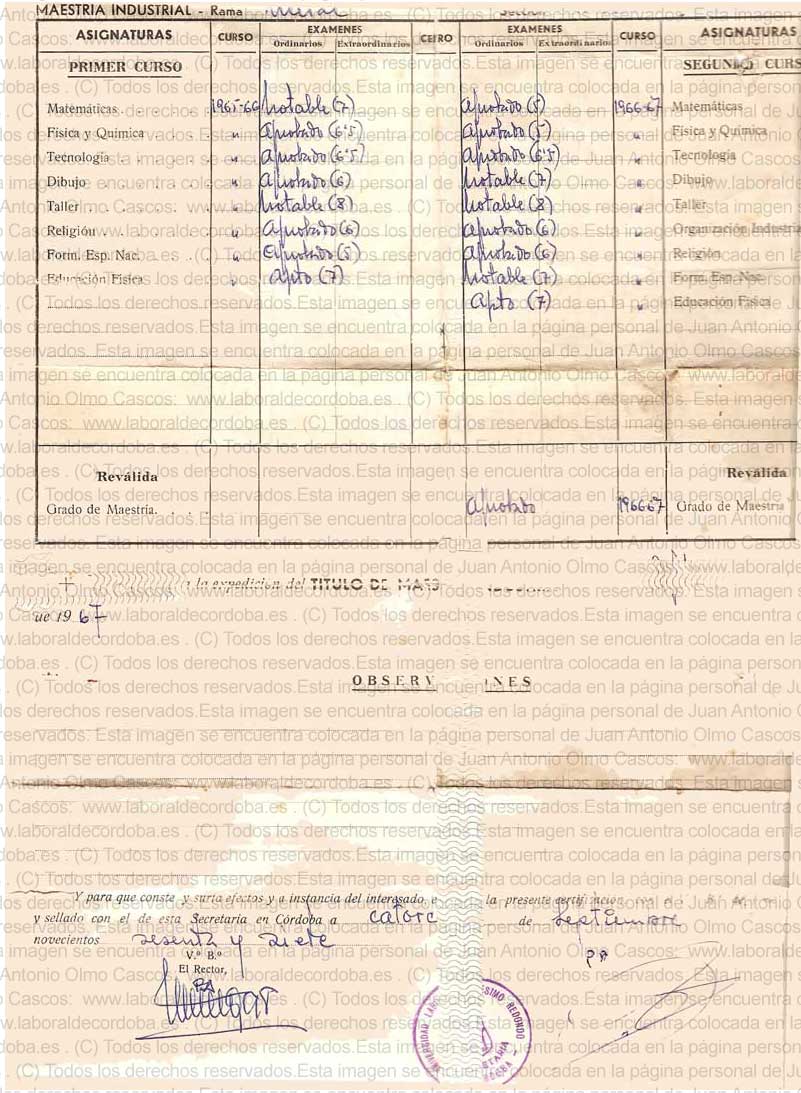 MAESTRIA INDUSTRIAL - Rama
ASIGNATURAS CURSO EXAMENES CEFRO EXAMENES CURSO ASIGNATURAS
Ordinarios Extraordinarios Ordinarios Extraordinarios
PRIMER CURSO SEGUNDO CURS
Matemáticas 1965-66 Notable (7) Aprobado (5) 1966-67 Matemáticas
Física y Química " Aprobado (6'5) Aprobado (5) " Física y Química
Tecnología " Aprobado (6'5) Aprobado (6'5) " Tecnología
Dibujo " Aprobado (6) Notable (7) " Dibujo
Taller " Notable (8) Notable (8) " Taller
Religión " Aprobado (6) Aprobado (6) " Organización Industria
Form. Esp. Nac. " Aprobado (5) Aprobado (6) " Religión
Educación Física " Apto (7) Notable (7) " Form. Esp. Nac.
Apto (7) " Educación Física
Reválida Reválida
Grado de Maestría. Aprobado 196667 Grado de Maestría
a la expedición del TITULO DE MAES
de 19 67
OBSERV NES
Y para que conste y surta efectos y a instancia del interesado, e la presente certificación con el
y sellado con el de esta Secretaría en Córdoba a catorc de septiembre
novecientos sesenta y siete
V.º B.º
El Rector,
PA
UNIVERSIDAD LAB ESIMO REDONDO
(C) Todos los derechos reservados.Esta imagen se encuentra colocada en la página personal de Juan Antonio Olmo Cascos: www.laboraldecordoba.es .